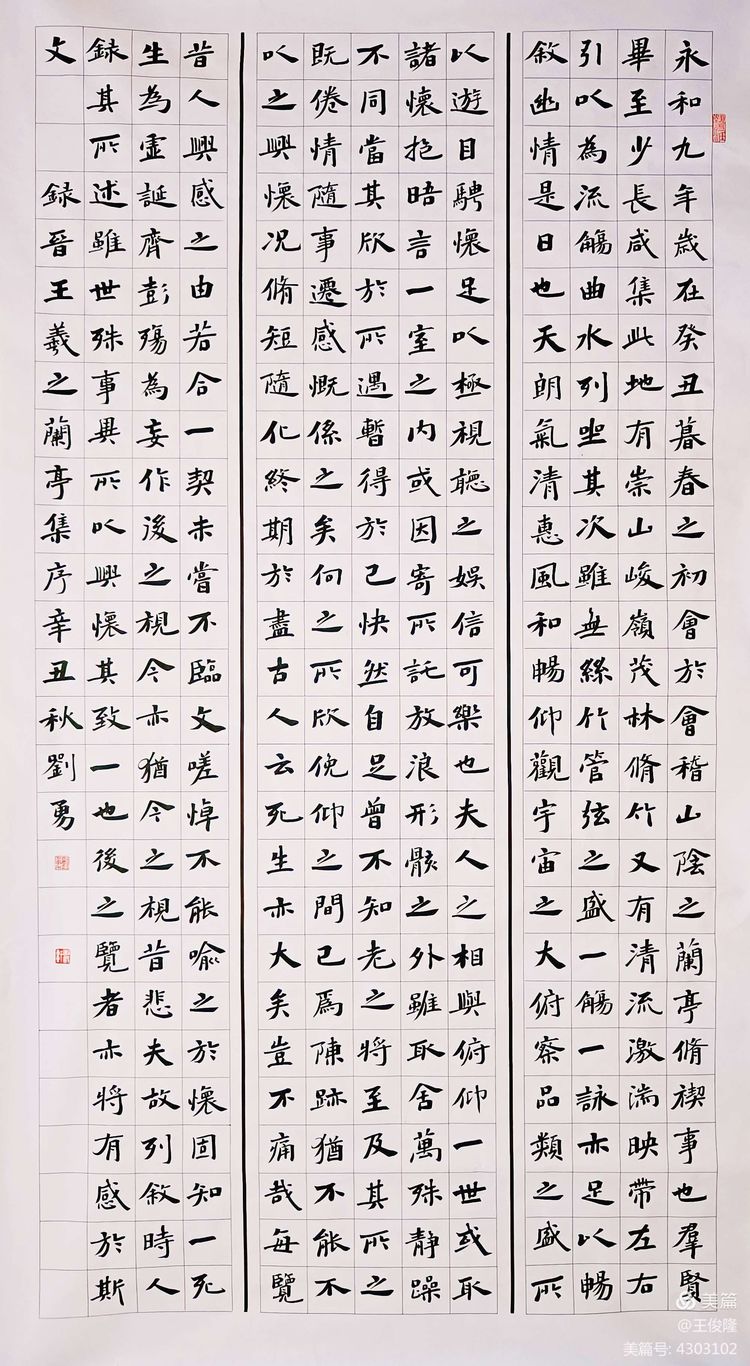 永和九年歲在癸丑暮春之初會於會稽山陰之蘭亭脩禊事也羣賢
畢至少長咸集此地有崇山峻嶺茂林脩竹又有清流激湍映帶左右
引以為流觴曲水列坐其次雖無絲竹管弦之盛一觴一詠亦足以暢
敘幽情是日也天朗氣清惠風和暢仰觀宇宙之大俯察品類之盛所
以遊目騁懷足以極視聽之娛信可樂也夫人之相與俯仰一世或取
諸懷抱晤言一室之内或因寄所託放浪形骸之外雖取舍萬殊静躁
不同當其欣於所遇暫得於己快然自足曾不知老之將至及其所之
既倦情隨事遷感慨係之矣向之所欣俛仰之間已爲陳跡猶不能不
以之興懷况脩短隨化終期於盡古人云死生亦大矣豈不痛哉每覽
昔人興感之由若合一契未嘗不臨文嗟悼不能喻之於懷固知一死
生為虛誕齊彭殤為妄作後之視今亦猶今之視昔悲夫故列敘時人
録其所述雖世殊事異所以興懷其致一也後之覽者亦將有感於斯
文 録晉王羲之蘭亭集序辛丑秋劉勇
美篇
@王俊隆
美篇号: 4303102